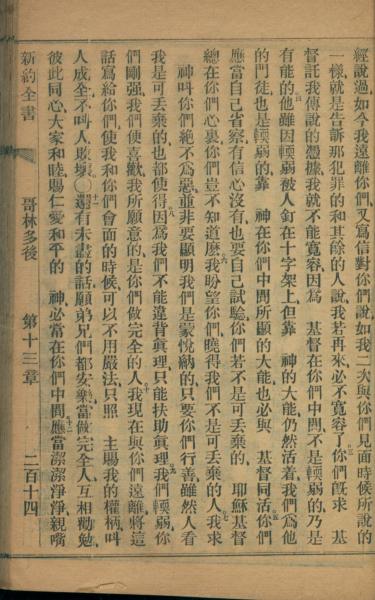 經說過、如今我遠離你們、又寫信對你們說、如我二次與你們見面時候所說的
一樣、就是告訴那犯罪的和其餘的人說、我若再來、必不寬容了、你們旣求 基
督託我傳說的憑據、我就不能寬容、因爲 基督在你們中間不是輭弱的、乃是
有能的、他雖因輭弱被人釘在十字架上、但靠 神的大能、仍然活着、我們爲他
的門徒、也是輭弱的、靠 神在你們中間所顯的大能、也必與 基督同活、你們
應當自己省察、有信心沒有、也要自己試驗、你們若不是可丟棄的、 耶穌基督
總在你們心裏、你們豈不知道麽、我盼望你們曉得我們不是可丟棄的人、我求
神叫你們絕不爲惡、重非要顯明我們是蒙悅納的、只要你們行善、雖然人看
我是可丟棄的也都使得、因爲我們不能違背眞理、只能扶助眞理、我們輭弱、你
們剛强、我們便喜歡、我所願意的、是你們做完全的人、我現在與你們遠離、將這
話寫給你們、使我和你們會面的時候、可以不用嚴法、只照 主賜我的權柄、叫
人成全、不叫人敗壞、○還有未盡的話、願弟兄們都安樂、當做完全人、互相勸勉、
彼此同心、大家和睦、賜仁愛和平的 神、必當在你們中間、應當潔潔淨淨、親嘴
新約全書 哥林多後 第十三章 二百十四